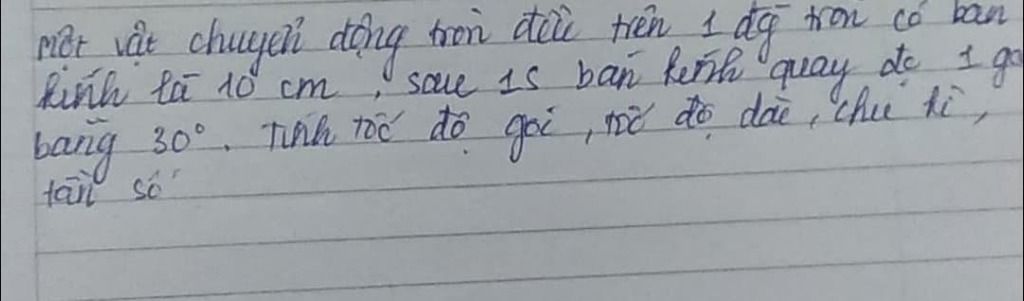 một vật chuyển động tròn đều trên 1 đg tròn có bán
kính là 10 cm, sau 1s bán kính quay đc 1 gó
bằng 30°. Tính tốc độ góc, tốc độ dài, chu kì,
tần số